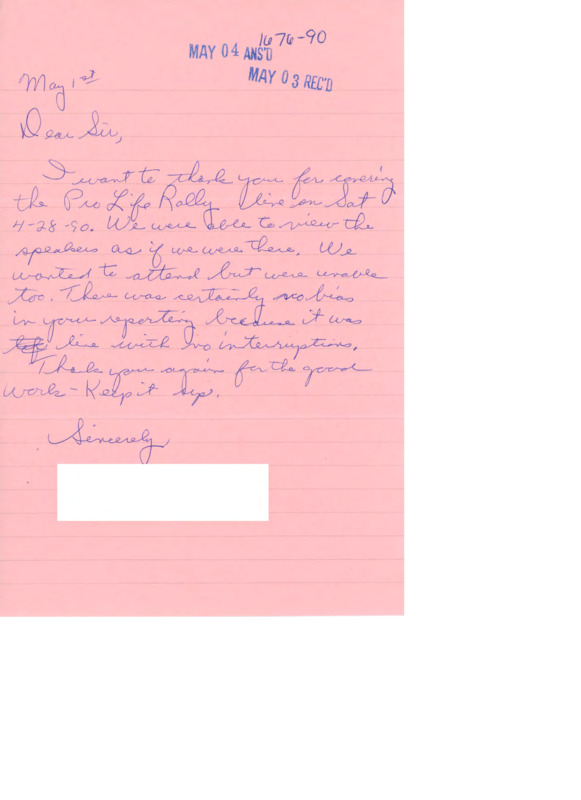 1676-90
MAY 04 ANS'D
MAY 03 REC'D
May 1st
Dear Sir,
I want to thank you for covering
the Pro Life Rally live on Sat
4-28-90. We were able to view the
speakers as if we were there. We
wanted to attend but were unable
too. There was certainly no bias
in your reporting because it was
live with no interruptions.
Thank you again for the good
work - Keep it up.
Sincerely